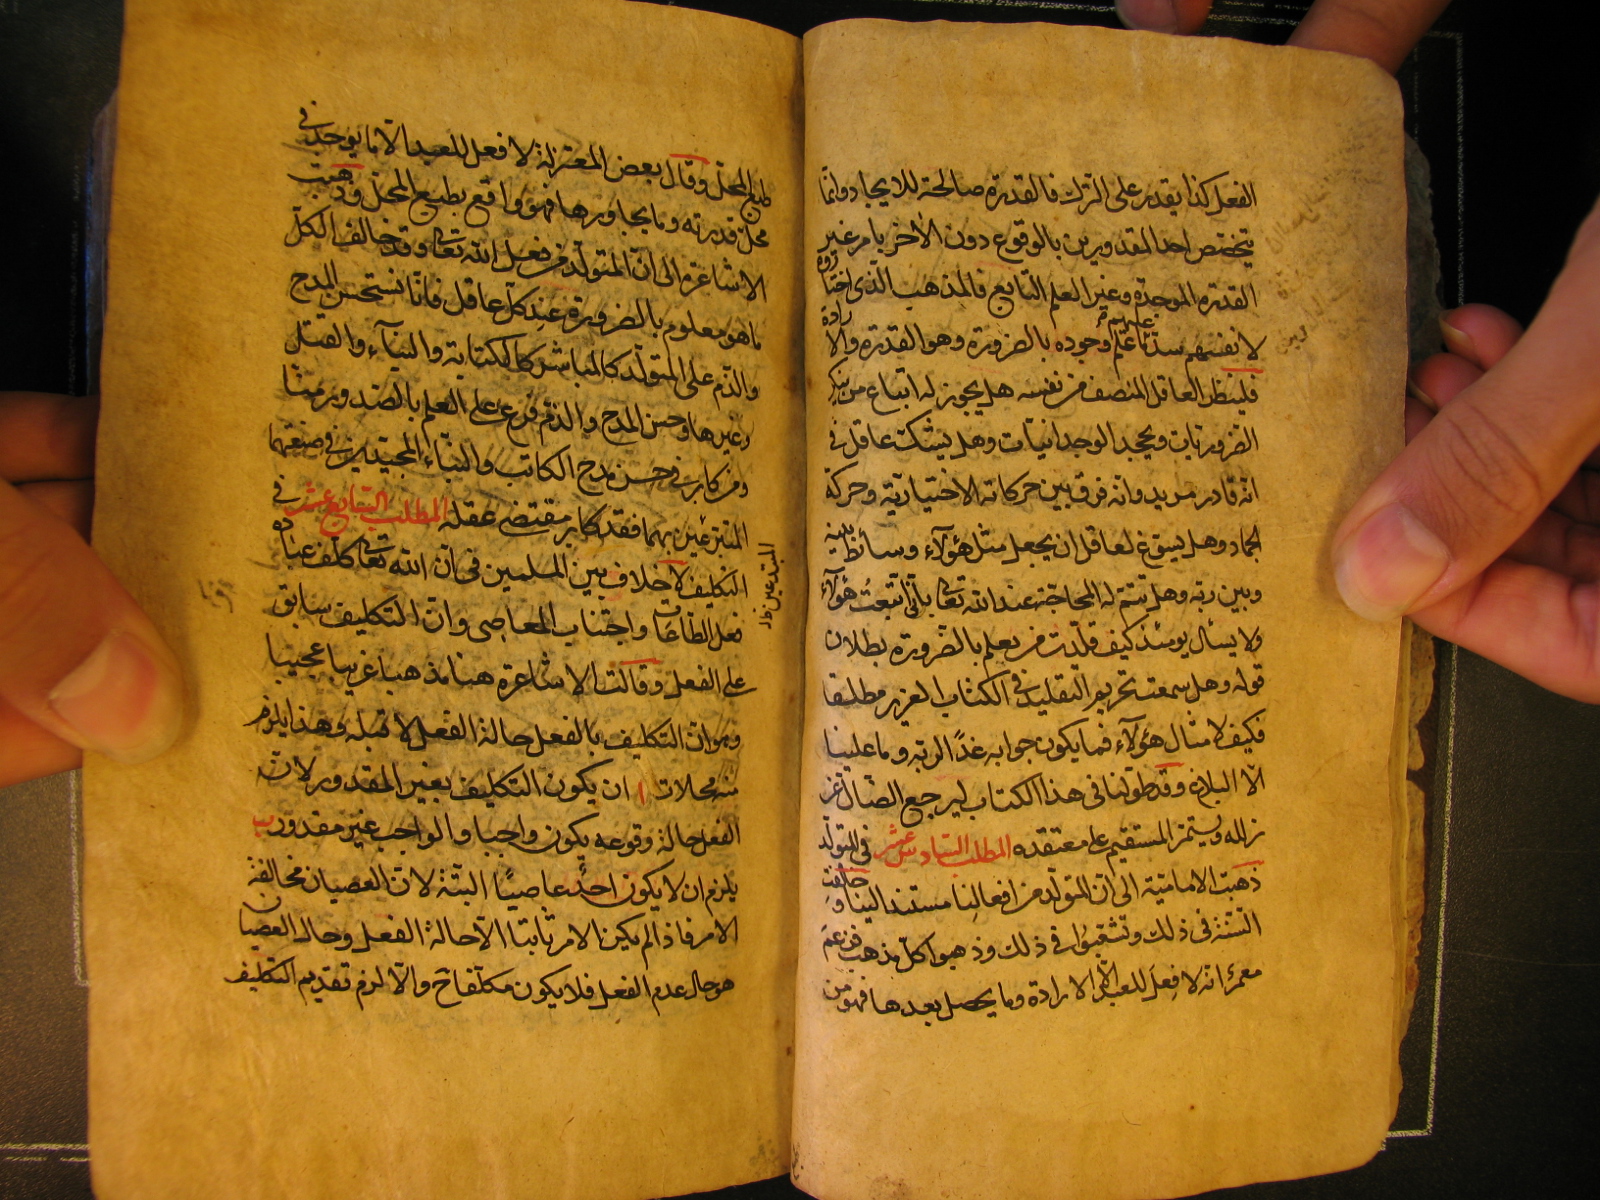 الفعل كذا يقدر على الترك فالقدرة صالحة للايجاد وانما
يتخصص احد المقدورين بالوقوع دون الآخر بامر غير
القدرة الموجدة وغير العلم التابع فالمذهب الذى اختاروه
لانفسهم سدّ ما علم وجوده بالضرورة وهو القدرة والارادة
عليهم
فلينظر العاقل المنصف من نفسه هل يجوز له اتباع من ينكر
الضروريات ويجحد الوجدانيات وهل يشك عاقل فى
انه قادر مريد وانه فرق بين حركاته الاختيارية وحركة
الجماد وهل يسوغ لعاقل ان يجعل مثل هؤلاء وسائط بينه
وبين ربه وهل تتم له المحاجة عند الله تعالى بأنى اتبعت هؤلاء
ولا يسأل يومئذ كيف قلّدت من يعلم بالضرورة بطلان
قوله وهل سمعت تحريم التقليد فى الكتاب العزيز مطلقا
فكيف لامثال هؤلاء فما يكون جوابه غدًا لربه وما علينا
الا البلاغ وقد طولنا فى هذا الكتاب ليرجع الضال عن
زلله ويستمر المستقيم على معتقده المطلب السادس عشر فى التولّد
ذهبت الامامية الى ان المتولد من افعالنا مستند الينا وخالفت
السنة فى ذلك وتشعبوا فى ذلك وذهبوا كل مذهب فزعم
معمر انه لا فعل للعبد الا الارادة وما يحصل بعدها فهو من
طبع المحل وقال بعض المعتزلة لا فعل للعبد الا ما يوجد فى
محل قدرته وما يجاورها فهو واقع بطبع المحل وذهبت
الاشاعرة الى ان المتولد من فعل الله تعالى وقد خالف الكل
ما هو معلوم بالضرورة عند كل عاقل فانا نستحسن المدح
والذم على المتولد كالمباشر كالكتابة والبناء والقتل
وغيرها وحسن المدح والذم فرع على العلم بالصدور منا
ومن كابر فى حسن مدح الكاتب والبناء المجيدين فى صنعتهما
المتبرعين بهما فقد كابر مقتضى عقله المطلب السابع عشر فى
المبتدعين ظ
التكليف لا خلاف بين المسلمين فى ان الله تعالى كلف عباده
فعل الطاعات واجتناب المعاصى وان التكليف سابق
على الفعل وقالت الاشاعرة هنا مذهبا غريبا عجيبا
وهو ان التكليف بالفعل حالة الفعل لا قبله وهذا يلزم
منه محالات ا ان يكون التكليف بغير المقدور لان
الفعل حالة وقوعه يكون واجبا والواجب غير مقدور ب
يلزم ان لا يكون احد عاصيًا البتة لان العصيان مخالفة
الامر فاذا لم يكن الامر ثابتا الا حالة الفعل وحال العصيان
هو حال عدم الفعل فلا يكون مكلفا ح والا لزم تقديم التكليف